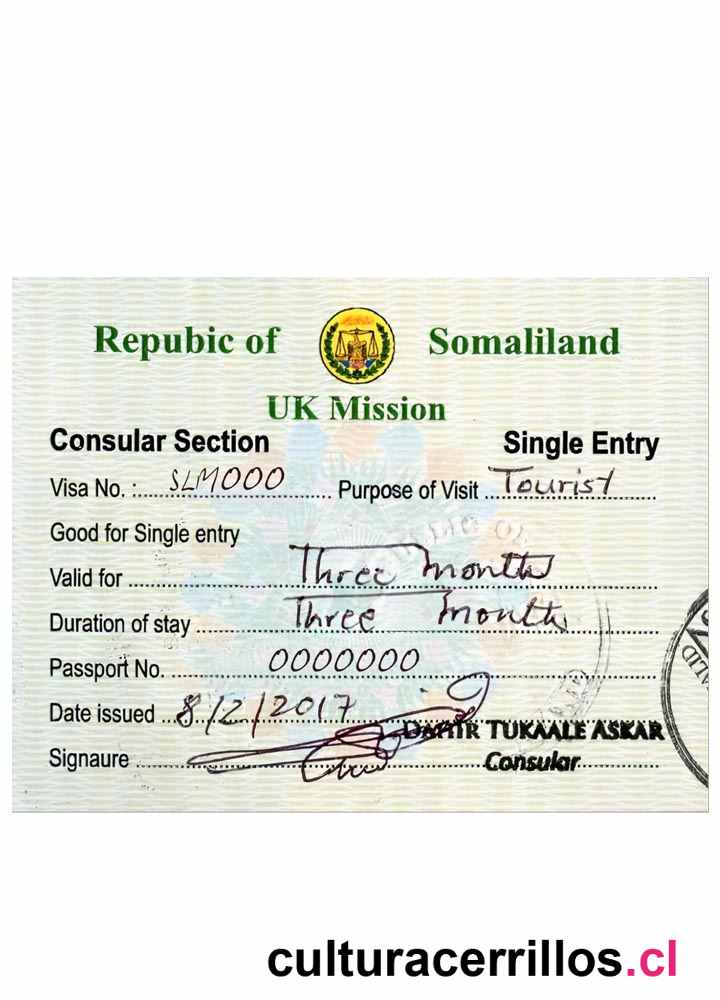 Repubic of Somaliland
UK Mission
Consular Section Single Entry
Visa No. : SLM000 Purpose of Visit Tourist
Good for Single entry
Valid for Three months
Duration of stay Three months
Passport No. 0000000
Date issued 8/2/2017
DAHIR TUKAALE ASKAR
Signaure Consular
culturacerrillos.cl